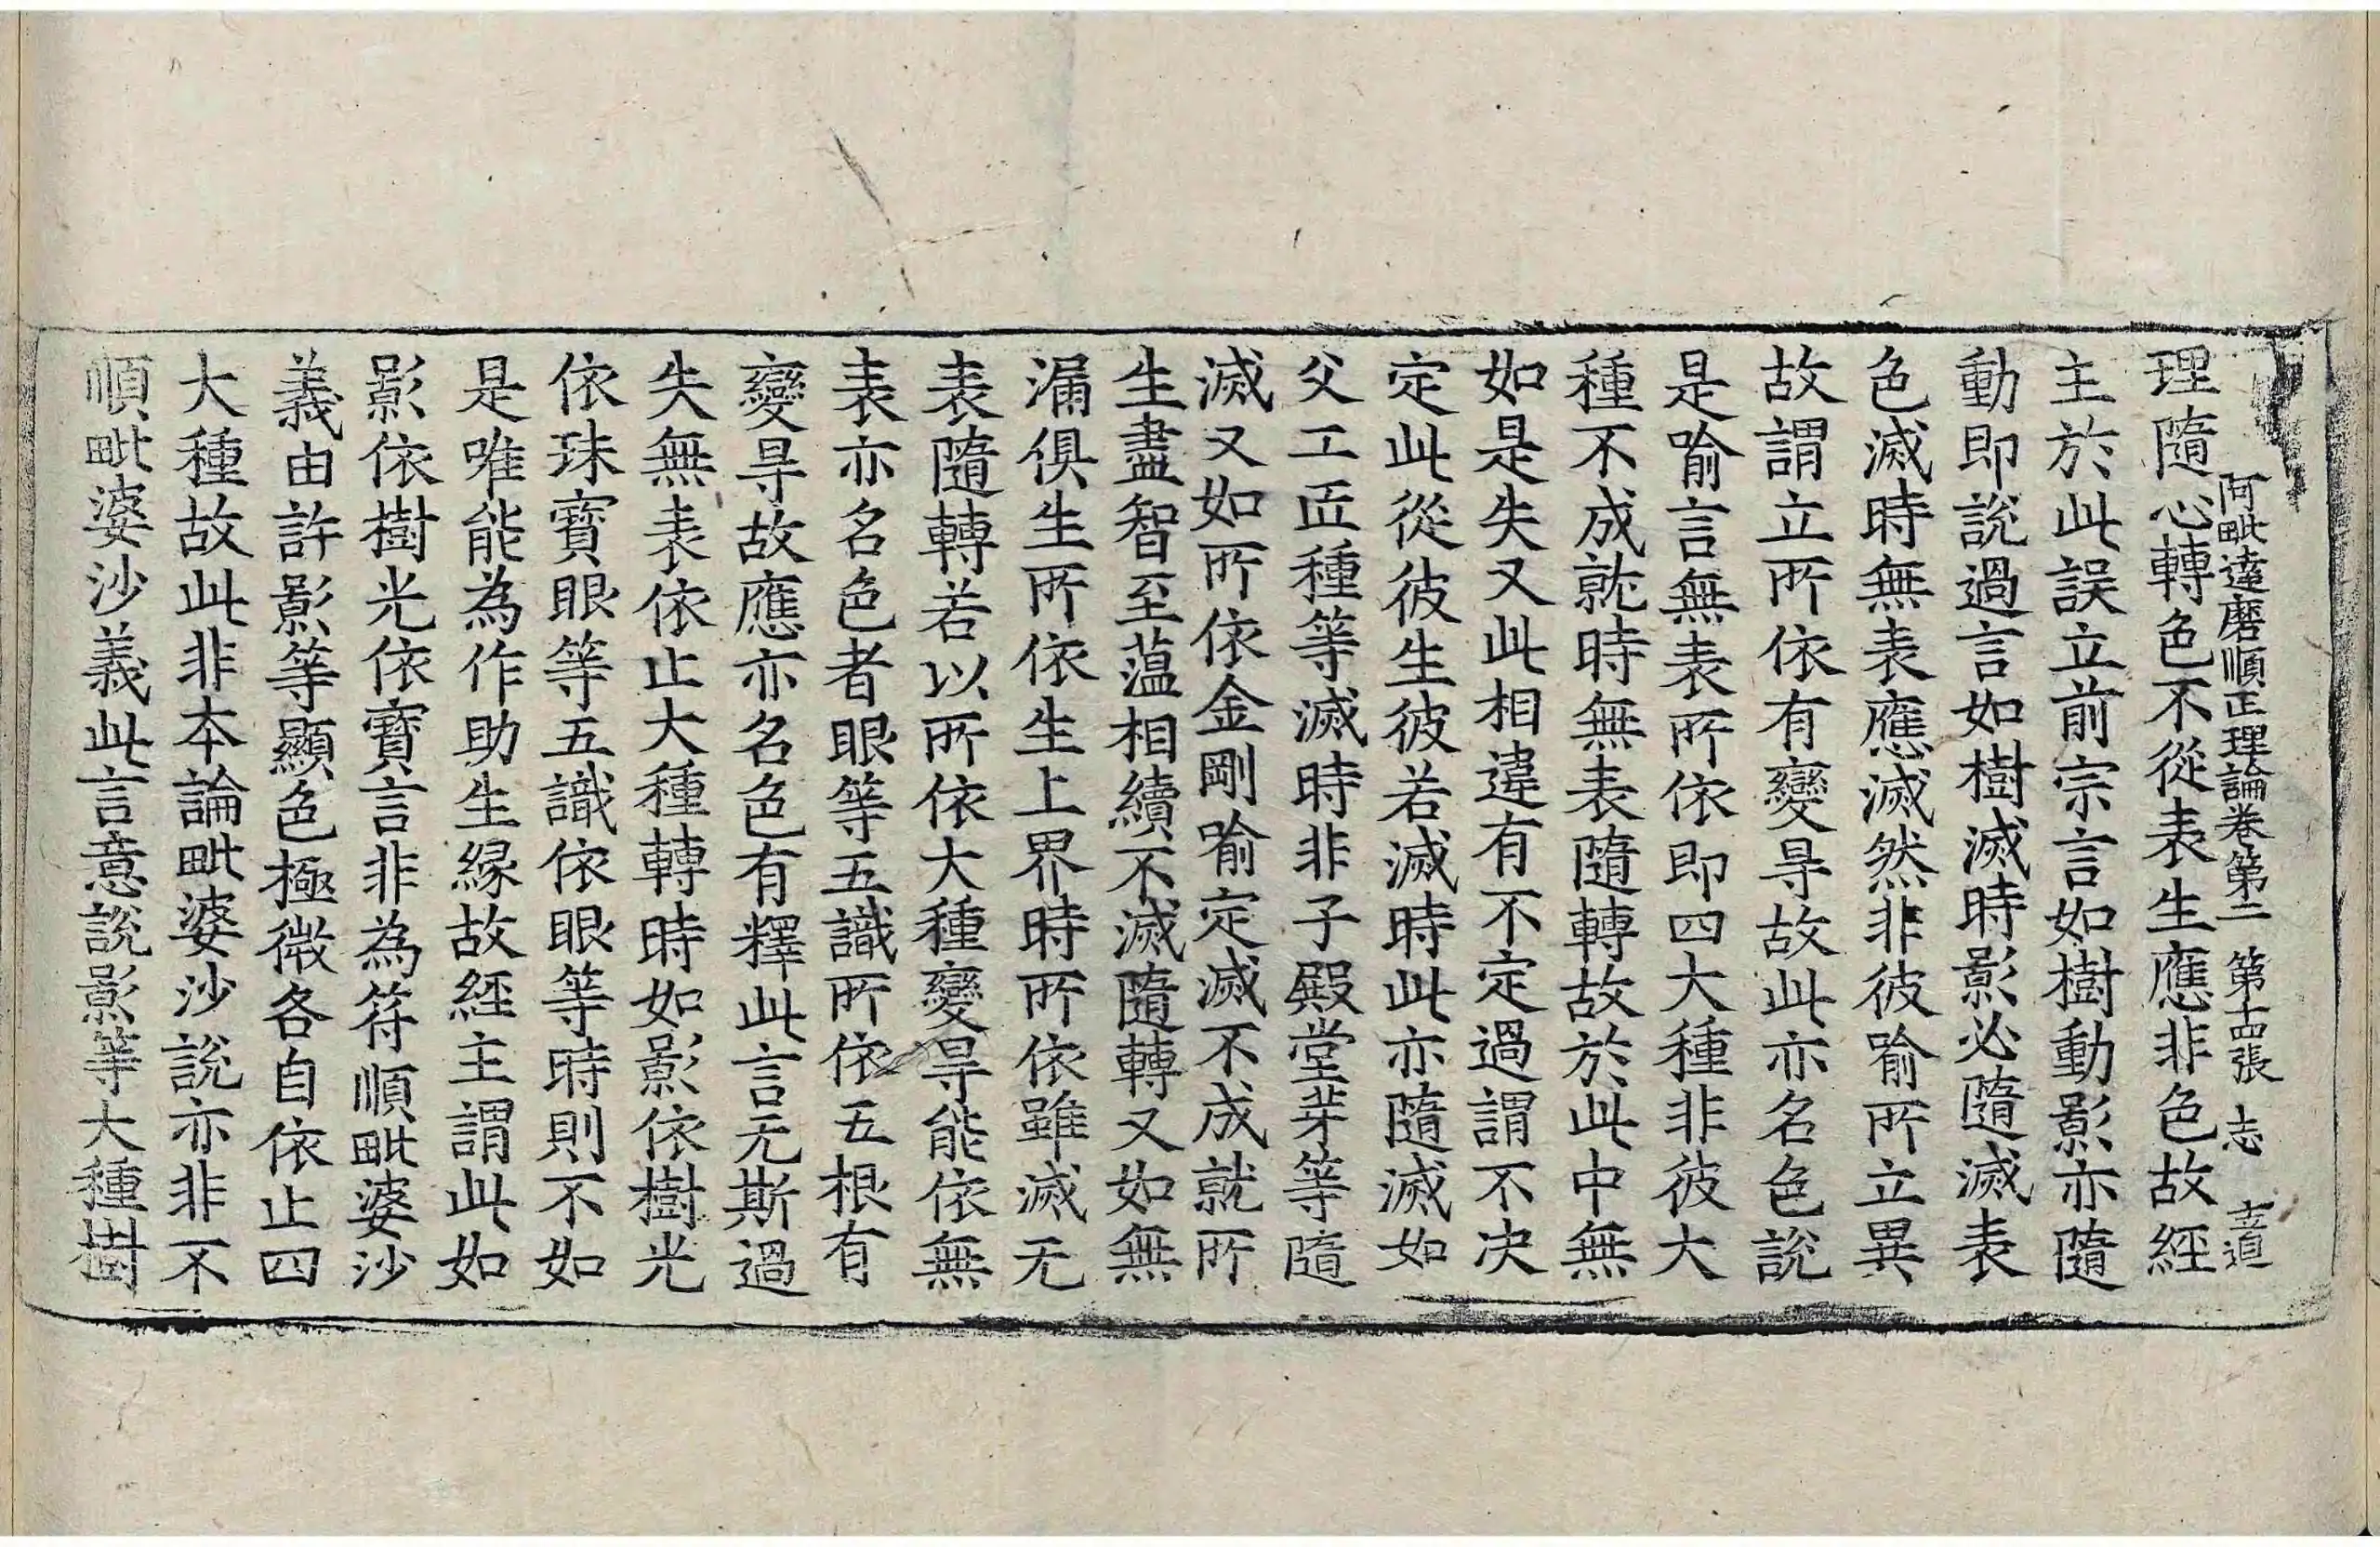 阿毗達磨順正理論卷第二 第十四張 志 志道
理隨心轉色不從表生應非色故經
主於此誤立前宗言如樹動影亦隨
動即說過言如樹滅時影必隨滅表
色滅時無表應滅然非彼喻所立異
故謂立所依有變㝵故此亦名色說
是喻言無表所依即四大種非彼大
種不成就時無表隨轉故於此中無
如是失又此相違有不定過謂不决
定此從彼生彼若滅時此亦隨滅如
父工匠種等滅時非子殿堂芽等隨
滅又如所依金剛喻定滅不成就所
生盡智至蕰相續不滅隨轉又如無
漏俱生所依生上界時所依雖滅无
表隨轉若以所依大種變㝵能依無
表亦名色者眼等五識所依五根有
變㝵故應亦名色有釋此言无斯過
失無表依止大種轉時如影依樹光
依珠寶眼等五識依眼等時則不如
是唯能為作助生緣故經主謂此如
影依樹光依寶言非為符順毗婆沙
義由許影等顯色極微各自依止四
大種故此非本論毗婆沙說亦非不
順毗婆沙義此言意說影等大種樹